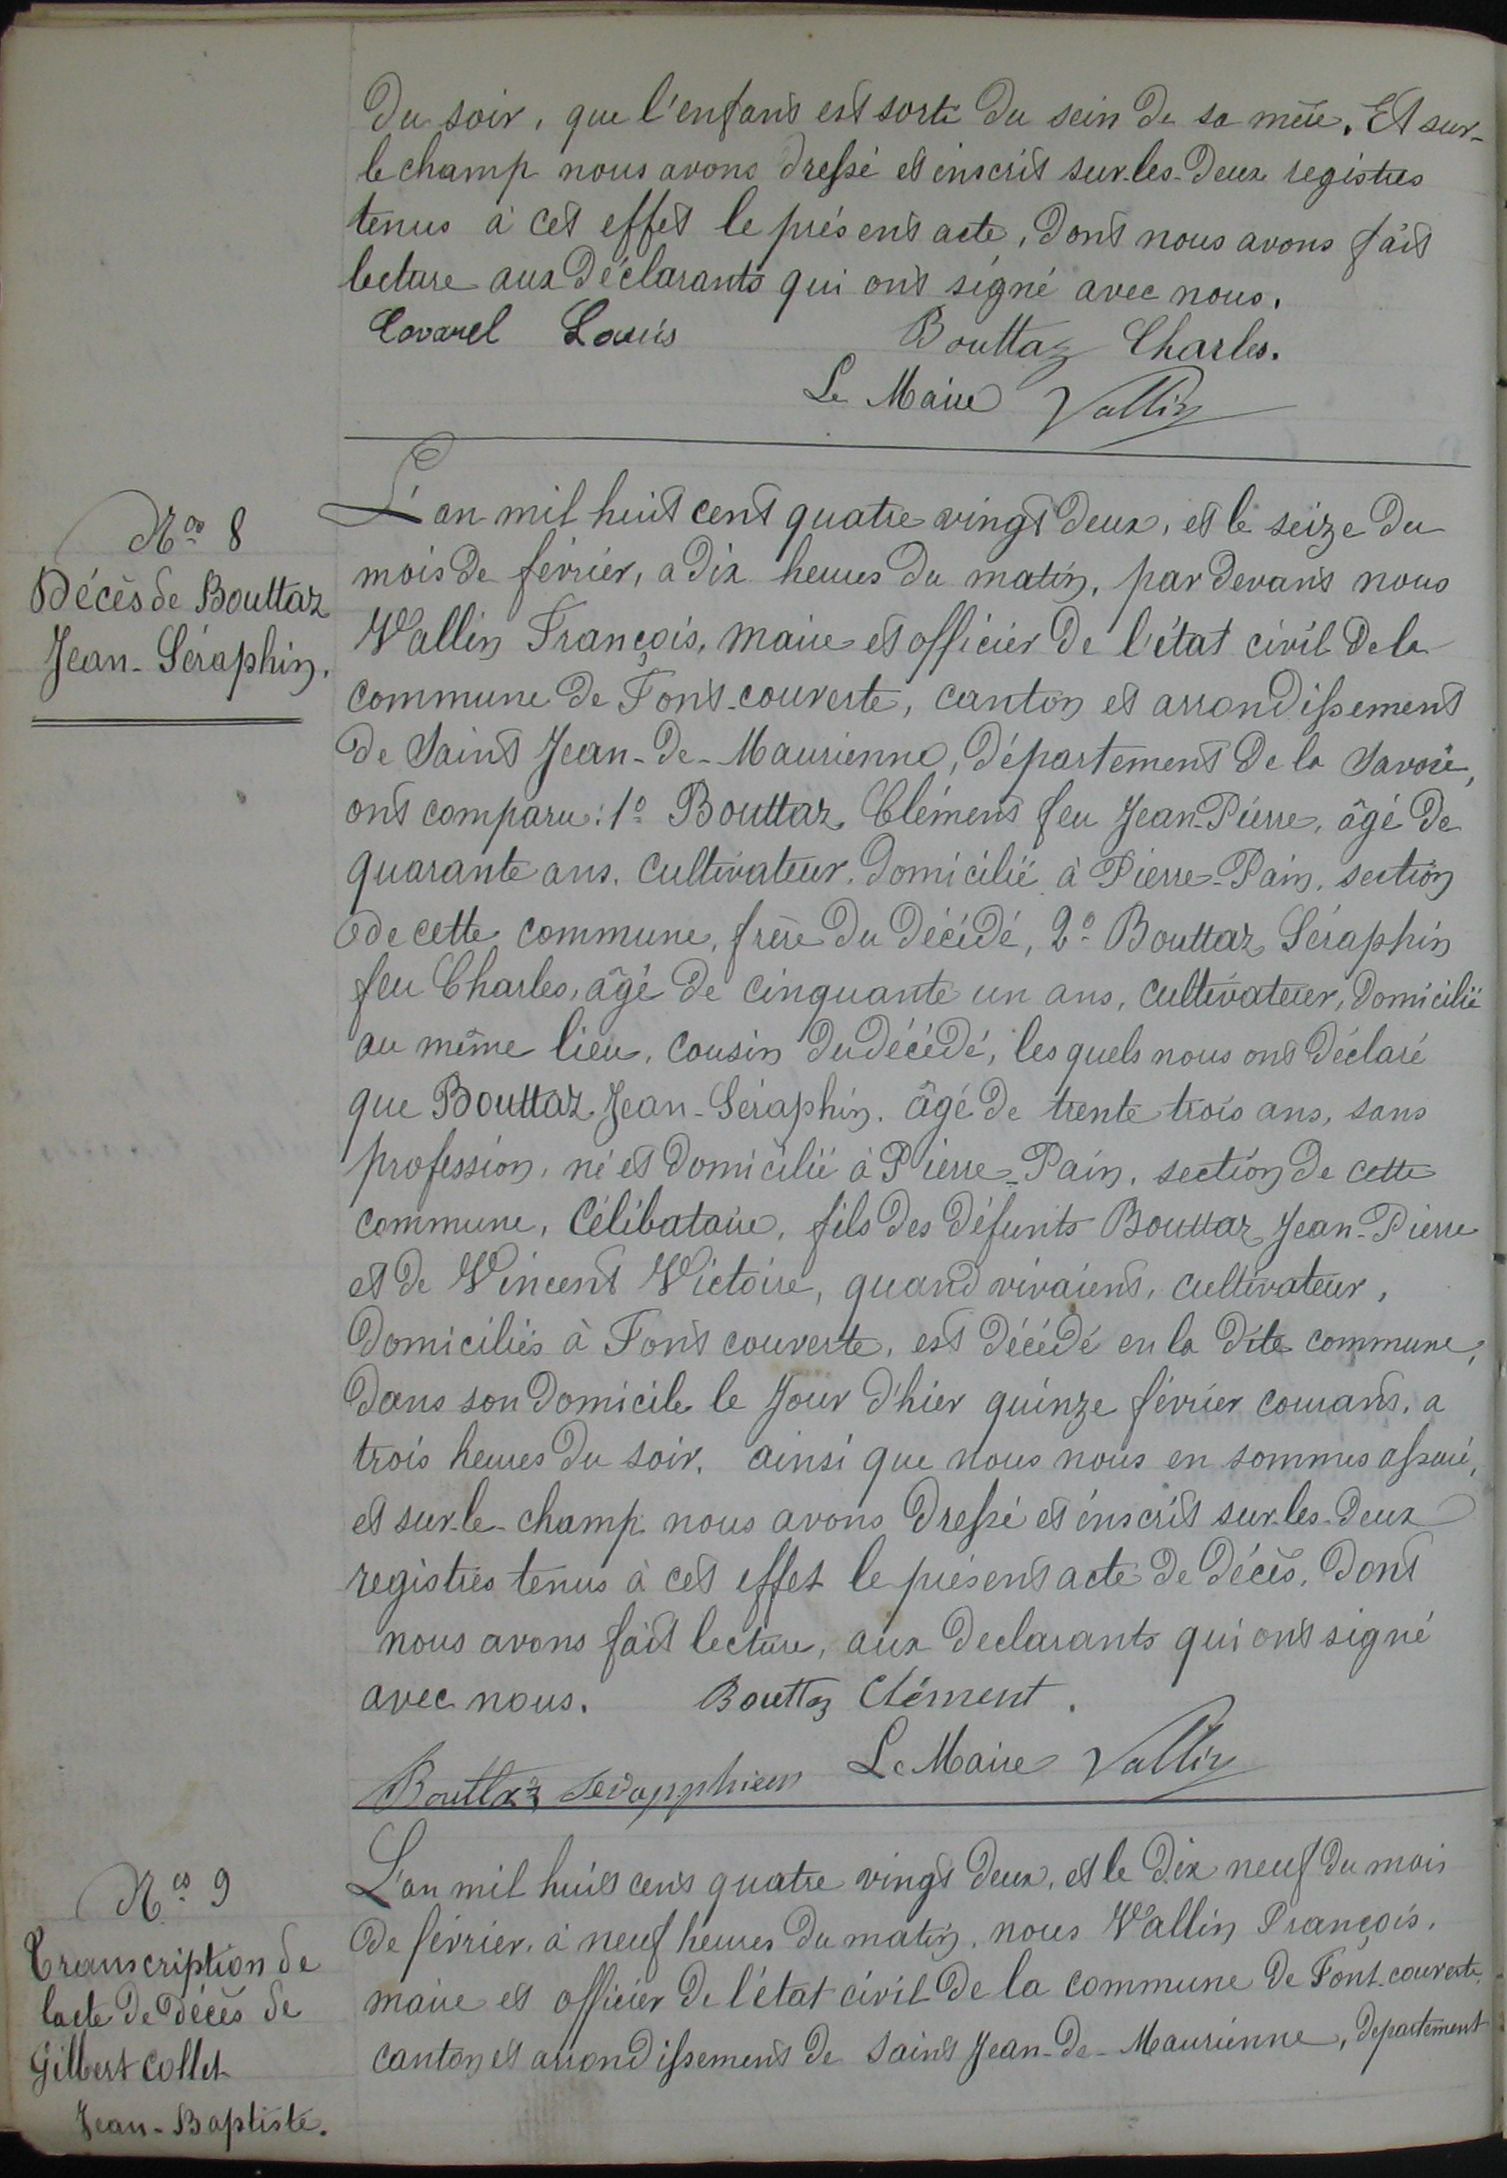 du soir, que l'enfant est sorti du sein de sa mère. Et sur-
le champ nous avons dressé et inscrit sur-les-deux registres
tenus à cet effet le présent acte, dont nous avons fait
lecture aux déclarants qui ont signé avec nous.
Covarel Louis Bouttaz Charles.
Le Maire Vallin
N.º 8
Décès de Bouttaz
Jean-Séraphin.
L'an mil huit cent quatre vingt deux, et le seize du
mois de février, a dix heures du matin, par devant nous
Vallin François, maire et officier de l'état civil de la
commune de Font-couverte, canton et arrondissement
de Saint Jean-de-Maurienne, département de la Savoie,
ont comparu: 1º Bouttaz Clément feu Jean-Pierre, âgé de
quarante ans, cultivateur, domicilié à Pierre-Pain, section
de cette commune, frère du décédé, 2º Bouttaz Séraphin
feu Charles, âgé de cinquante un ans, cultivateur, domicilié
au même lieu, cousin du décédé, les quels nous ont déclaré
que Bouttaz Jean-Séraphin, âgé de trente trois ans, sans
profession, né et domicilié à Pierre-Pain, section de cette
commune, célibataire, fils des défunts Bouttaz Jean-Pierre
et de Vincent Victoire, quand vivaient, cultivateur,
domiciliés à Font couverte, est décédé en la dite commune,
dans son domicile le jour d'hier quinze février courant, a
trois heures du soir, ainsi que nous nous en sommes assuré,
et sur-le-champ nous avons dressé et inscrit sur-les-deux
registres tenus à cet effet le présent acte de décès, dont
nous avons fait lecture, aux declarants qui ont signé
avec nous. Bouttaz Clément.
Le Maire Vallin
Bouttaz Serapphien
N.º 9
Transcription de
lacte de décès de
Gilbert Collet
Jean-Baptiste.
L'an mil huit cent quatre vingt deux, et le dix neuf du mois
de février, à neuf heures du matin, nous Vallin François,
maire et officier de l'état civil de la commune de Font-couverte,
canton et arrondissement de Saint Jean-de-Maurienne, departement